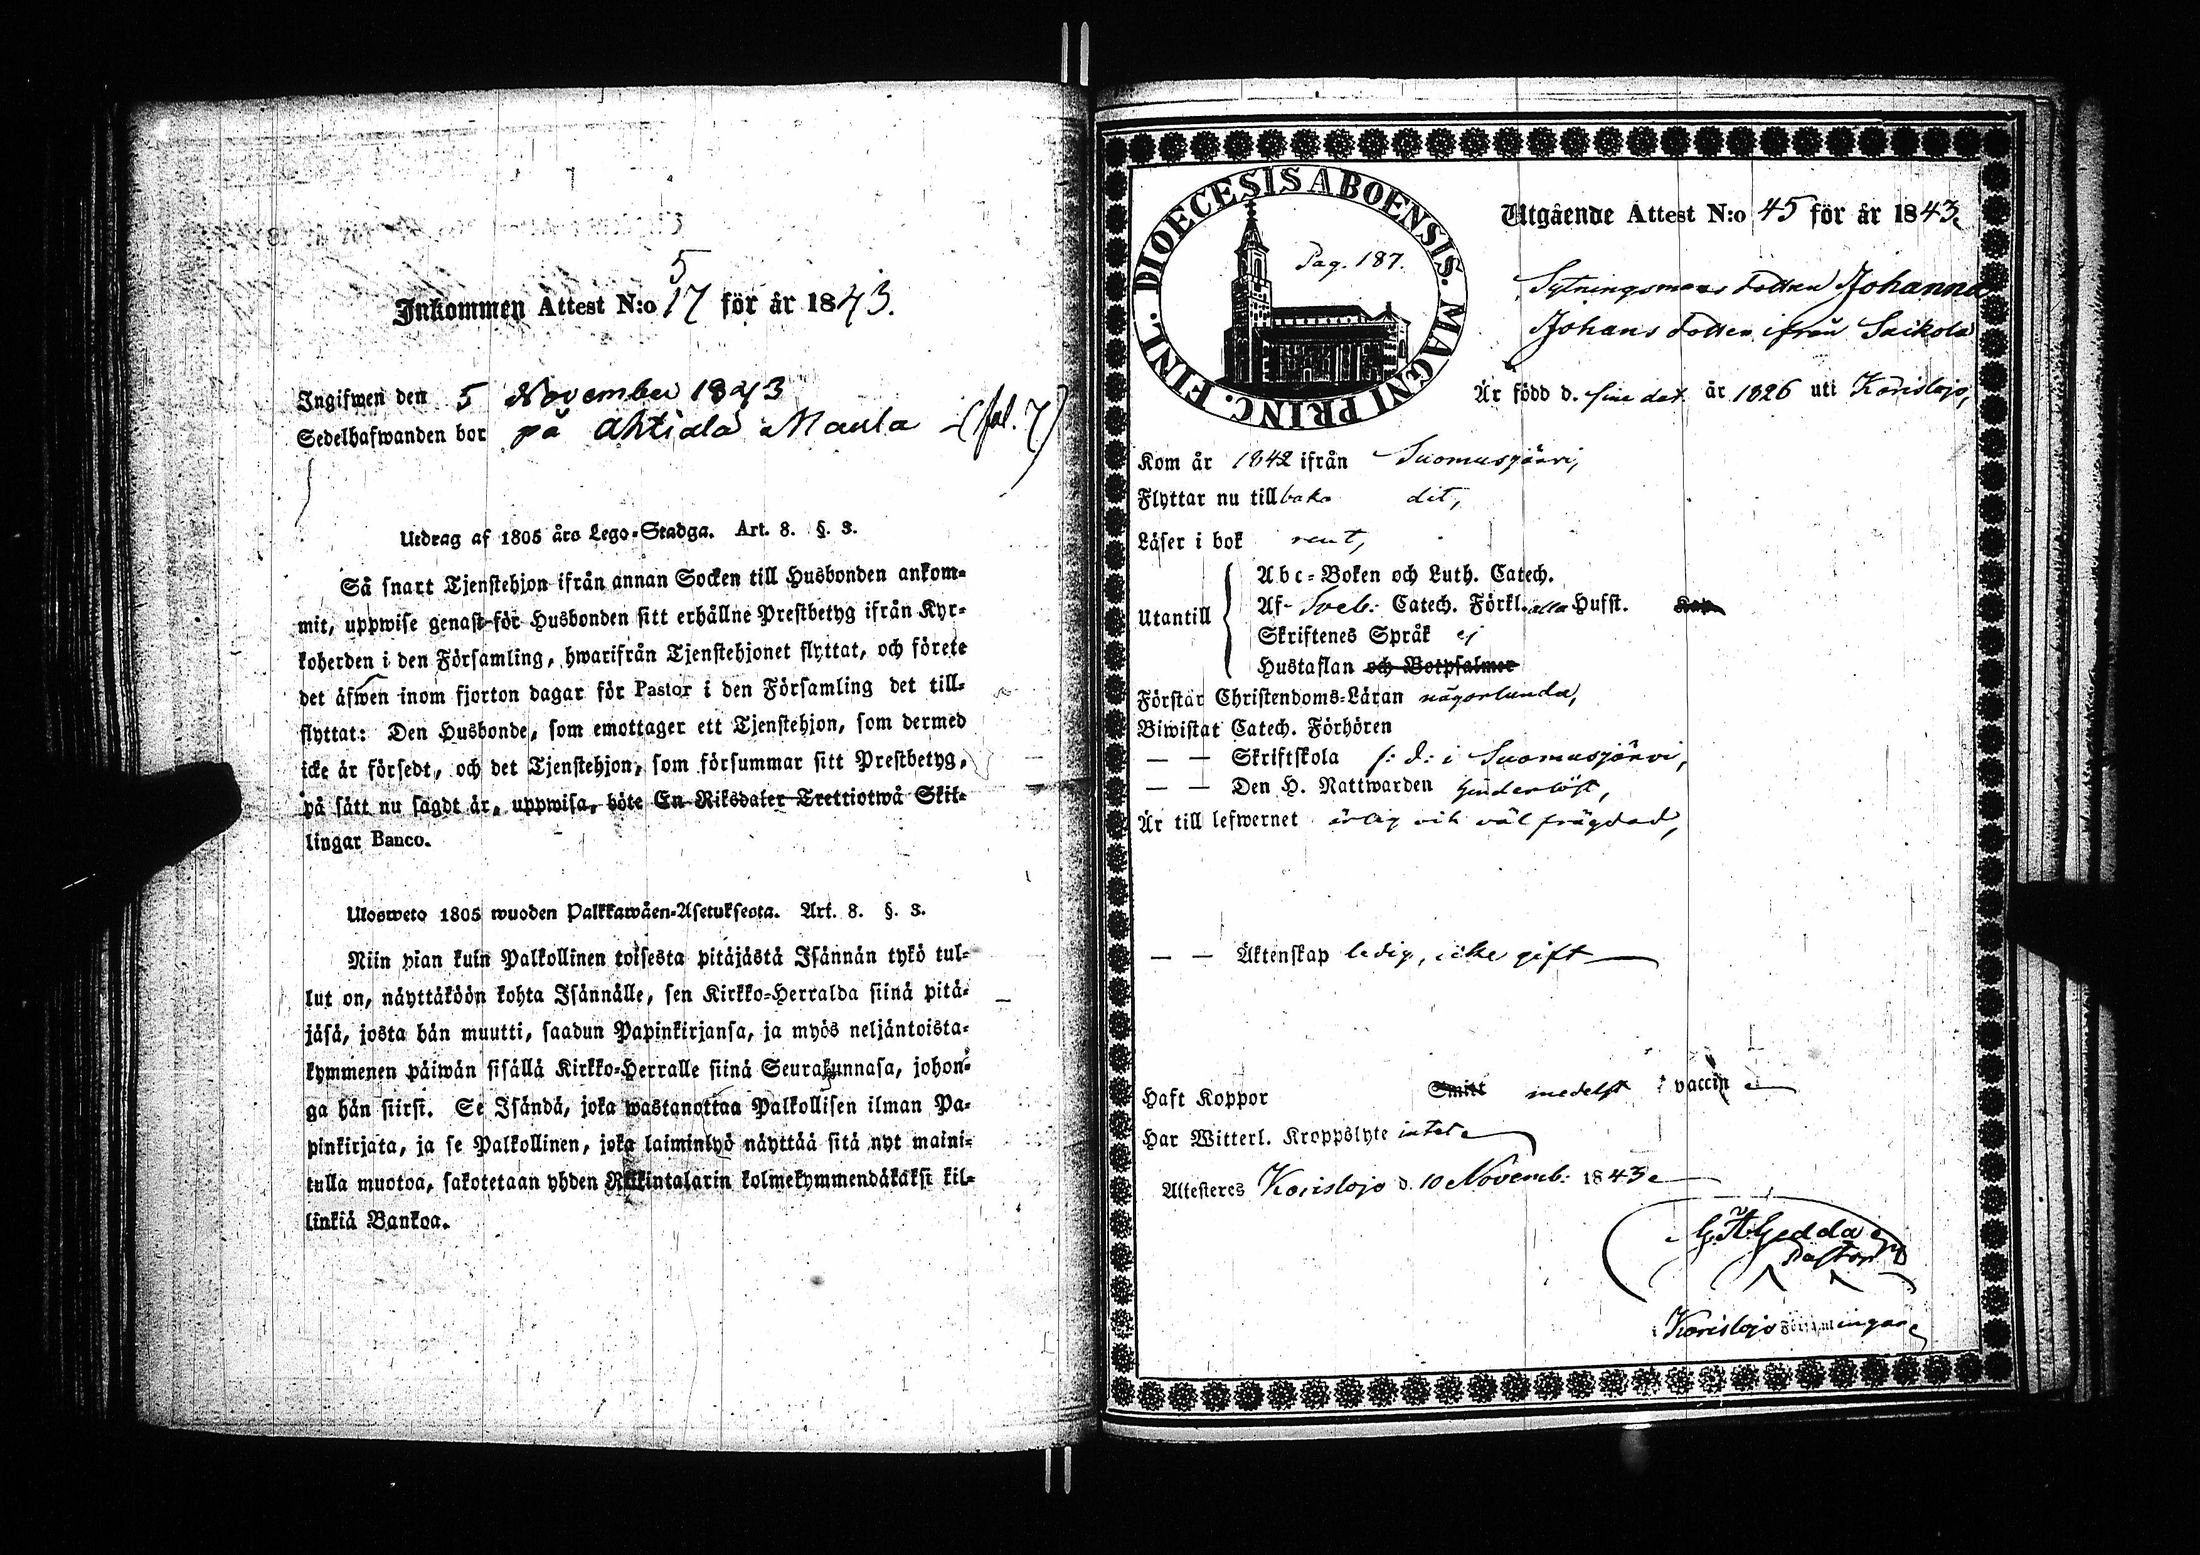 5
Inkommen Attest N:o 17 för år 1843.
Ingifwen den 5 November 1843
Sedelhafwanden bor på Ahtiala Maula (fol. 7)
Utdrag af 1805 års Lego-Stadga. Art. 8. §. 3.
Så snart Tjenstehjon ifrån annan Socken till Husbonden ankom-
mit, uppwise genast för Husbonden sitt erhållne Prestbetyg ifrån Kyr-
koherden i den Församling, hwarifrån Tjenstehjonet flyttat, och förete
det äfwen inom fjorton dagar för Pastor i den Församling det till-
flyttat: Den Husbonde, som emottager ett Tjenstehjon, som dermed
icke är försedt, och det Tjenstehjon, som försummar sitt Prestbetyg,
på sätt nu sagdt är, uppwisa, böte En Riksdaler Trettiotwå Skil-
lingar Banco.
Ulosweto 1805 wuoden Palkkawäen-Asetuksesta. Art. 8. §. 3.
Niin pian kuin Palkollinen toisesta pitäjästä Isännän tykö tul-
lut on, näyttäköön kohta Isännälle, sen Kirkko-Herralda siinä pitä-
jäsä, josta hän muutti, saadun Papinkirjansa, ja myös neljäntoista-
kymmenen päiwän sisällä Kirkko-Herralle siinä Seurakunnasa, johon-
ga hän siirsi. Se Isändä, joka wastanottaa Palkollisen ilman Pa-
pinkirjata, ja se Palkollinen, joka laiminlyö näyttää sitä nyt maini-
tulla muotoa, sakotetaan yhden Riikintalarin kolmekymmendäkaksi kil-
linkiä Bankoa.
DIOECESIS ABOENSIS. MAGNI PRINC. FINL.
Pag. 187.
Utgående Attest N:o 45 för år 1843
Sytningsmans dottren Johanna
Johans dotter ifrån Saikola
Är född d. sine dat. år 1826 uti Karislojo,
Kom år 1842 ifrån Suomusjärvi,
Flyttar nu tillbaka dit,
Läser i bok rent,
Utantill
Abc-Boken och Luth. Catech.
Af Sveb: Catech. Förkl. alla Hufst. Kap.
Skriftenes Språk ej
Hustaflan och Botpsalmer
Förstår Christendoms-Läran någorlunda,
Biwistat Catech. Förhören
— — Skriftskola s: d: i Suomusjärvi,
— — Den H. Nattwarden hinderlöst,
Är till lefwernet ärlig och väl frägdad,
— — Äktenskap ledig, icke gift
Haft Koppor Smitt medelst vaccin
Har Witterl. Kroppslyte intet
Attesteres Karislojo d. 10 Novemb: 1843
Gedda
Pastor
i Karislojo Församlingar